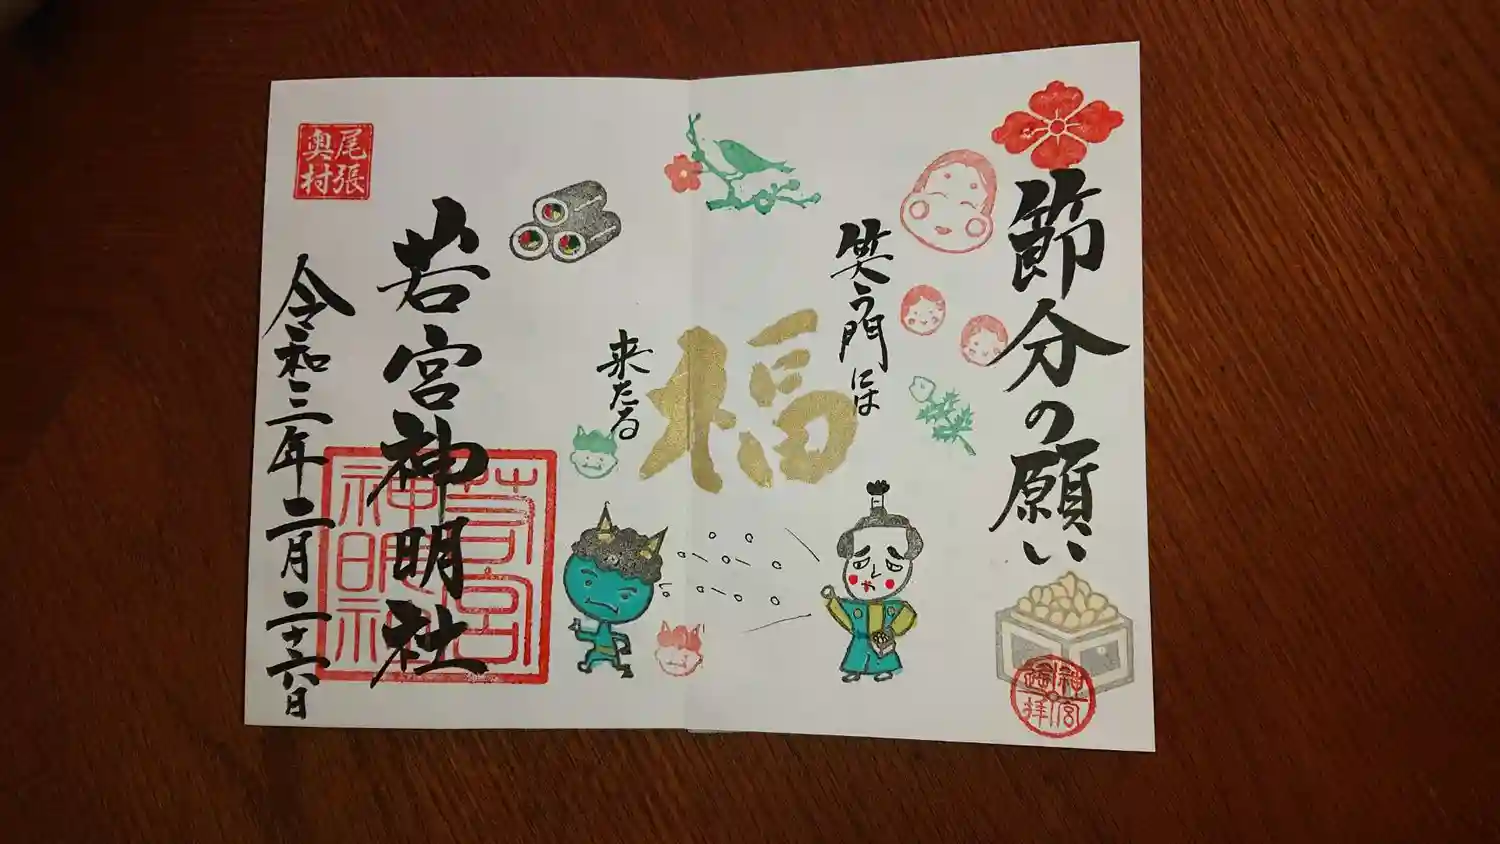 節分の願い
笑う門には
福
来たる
若宮神明社
令和三年二月二十六日
尾張
奥村
若宮
神明社
神宮
遥拝